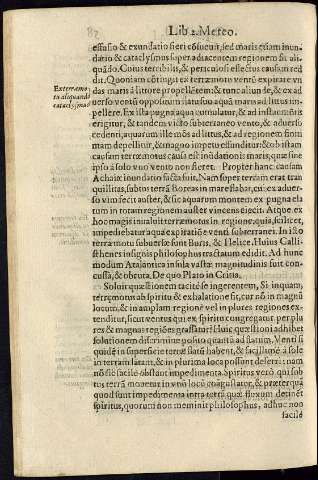 82
Lib. 2. Meteo.
effusio & exundatio fieri cōsuevit, sed maris etiam inun-
datio & cataclysmus super adiacentem regionem fit ali-
quādo. Cuius terribilis, & periculosi effectus causam red-
dit. Quoniam cōtingit ex terræmotu ventū expirare vn
das maris à littore propellētem; & tunc aliunde, & ex ad
uerso ventū oppositum
pellere. Ex ista pugna aqua contumulatur, & ad instar mōtis
erigitur, & tandem victo subterraneo vento, & aduerso
cedenti, aquarum ille mōs ad littus, & ad regionem finiti
mam depellitur, & magno impetu effunditur: & ob istam
causam terræmotus causa est inūdationis maris, quæ sine
ipso à solo vno vento non fieret. Propter hanc causam
Achaiæ inundatio facta fuit. Nam super terram erat tran
quillitas, subtus terrā Boreas in mare flabat, cui ex aduer
so vim fecit auster, & sic aquarum montem ex pugna ela
tum in totam regionem auster vincens eiecit. Atque ex
hoc magis inualuit terræmotus in regione, quia, scilicet,
impediebatur aqua expiratio e venti subterranei. In isto
terræmotu subuersæ sunt Buris, & Helice. Huius Calli
sthenes insignis philosophus tractatum edidit. Ad hunc
modum Atalantica insula vastæ magnitudinis fuit con-
cussa, & obruta. De quo Plato in Critia.
Soluit quæstionem tacitè se ingerentem, Si inquam,
terræmotus ab spiritu & exhalatione fit, cur nō in magnū
locum, & in amplam regionē vel in plures regiones ex-
tenditur, sicut ventus qui ex spiritu congregatur per plu
res & magnas regiōes grassatur? Huic quæstioni adhibet
solutionem discrimine posito quoad statum. Venti si
quidē in superficie terræ statū habent, & facillimè à sole
in terram latam, & in plurima loca possunt deferri: nam
nō sic facilè obstant impedimenta. Spiritus verò qui sob
tus terrā mouetur in vnū locū cōagustatur, & præterquā
quod sunt impedimenta intra terrā quæ fluxum detinēt
spiritus, quorum non meminit philosophus, adhuc non
facilè
Ex terræmo-
tu aliquando
cataclysmus